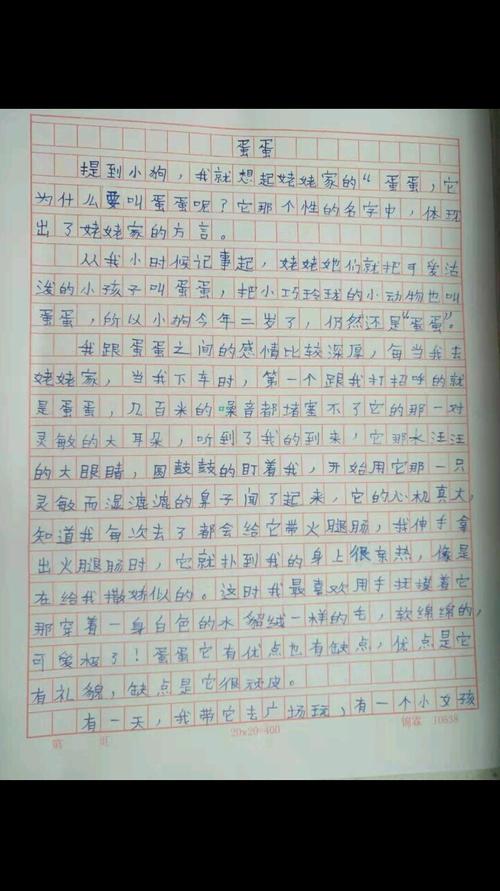 蛋蛋
提到小狗，我就想起姥姥家的“蛋蛋，它
为什么要叫蛋蛋呢？它那个性的名字中，体现
出了姥姥家的方言。
从我小时候记事起，姥姥她们就把可爱活
泼的小孩子叫蛋蛋，把小巧玲珑的小动物也叫
蛋蛋，所以小狗今年二岁了，仍然还是“蛋蛋”。
我跟蛋蛋之间的感情比较深厚，每当我去
姥姥家，当我下车时，第一个跟我打招呼的就
是蛋蛋，几百米的噪音都堵塞不了它的那一对
灵敏的大耳朵，听到了我的到来，它那水汪汪
的大眼睛，圆鼓鼓的盯着我，开始用它那一只
灵敏而湿漉漉的鼻子闻了起来，它的心机真大，
知道我每次去了都会给它带火腿肠，我伸手拿
出火腿肠时，它就扑到我的身上很亲热，像是
在给我撒娇似的。这时我最喜欢用手抚摸着它
那穿着一身白色的水貂绒一样的毛，软绵绵的，
可爱极了！蛋蛋它有优点也有缺点，优点是它
有礼貌，缺点是它很顽皮。
有一天，我带它去广场玩，有一个小女孩
第 页 20×20=400 锦霖 10638